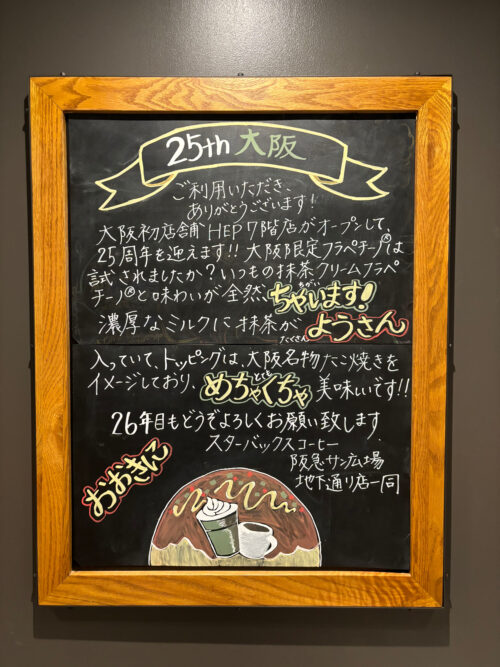 25th 大阪
ご利用いただき、
ありがとうございます!
大阪初店舗 HEP 7階店がオープンして、
25周年を迎えます!! 大阪限定フラペチーノ®は
試されましたか?いつもの抹茶クリームフラペ
チーノ®と味わいが全然、ちゃいます!
ちがい
濃厚なミルクに抹茶がようさん
たくさん
入っていて、トッピングは、大阪名物たこ焼きを
イメージしており、めちゃくちゃ美味いです!!
とても
26年目もどうぞよろしくお願い致します
スターバックスコーヒー
阪急サン広場
地下通り店一同
おおきに